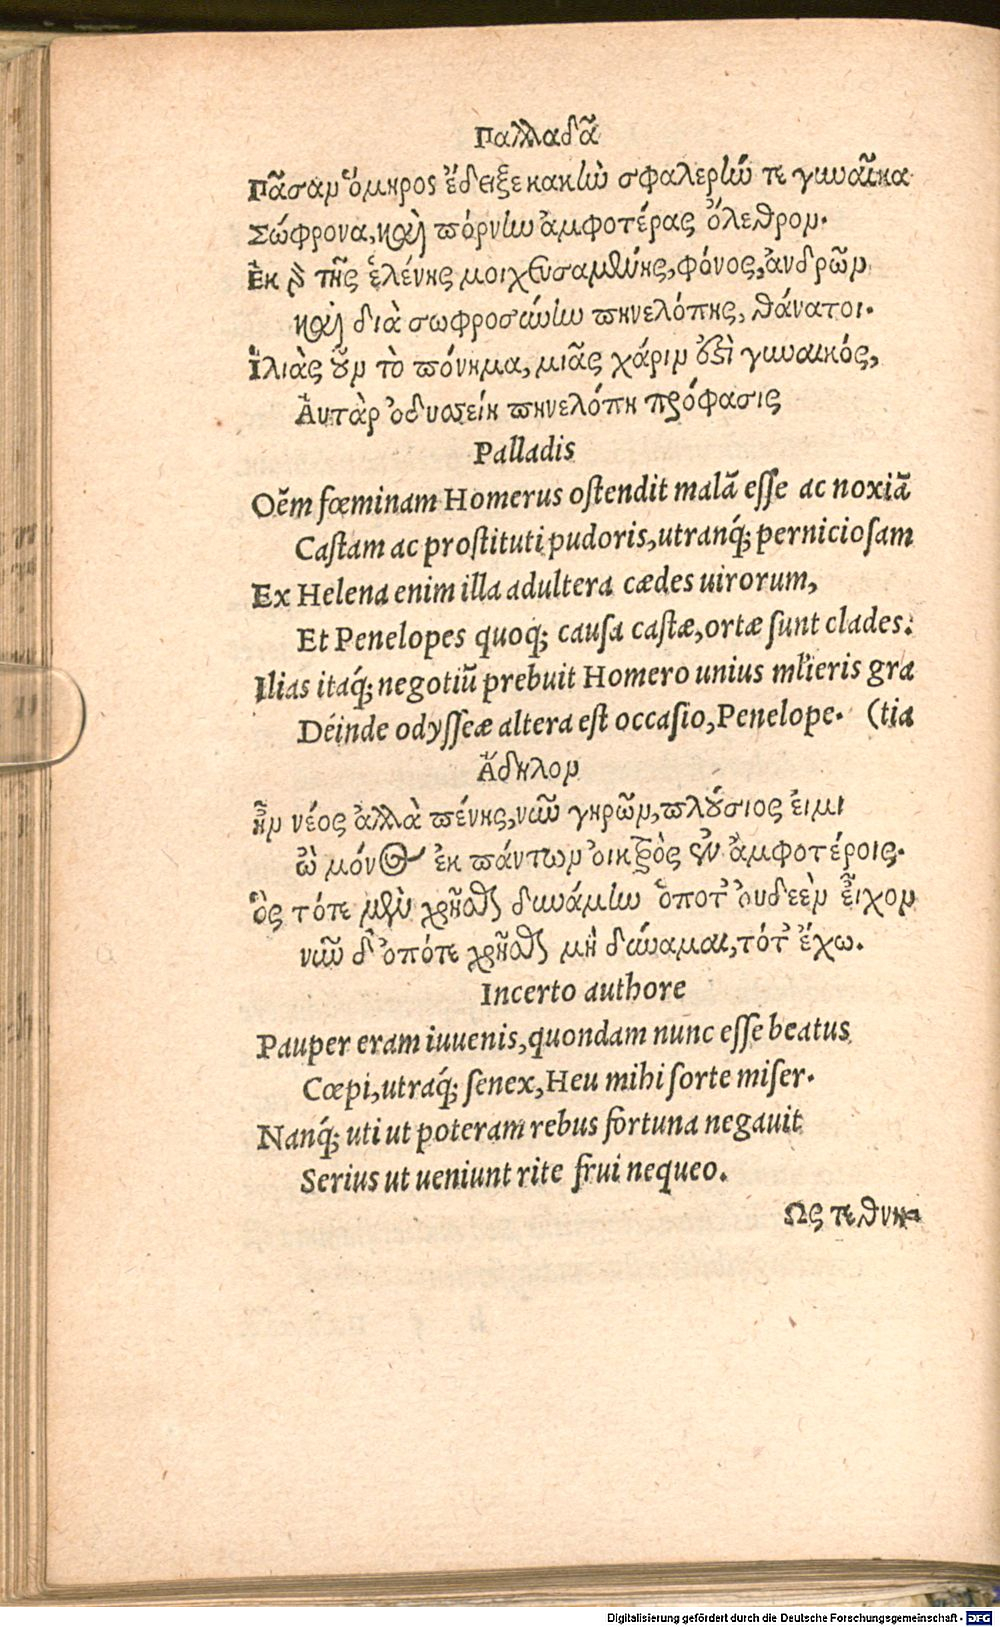 Παλλαδᾶ
Πᾶσαν ὅμηρος ἔδειξε κακὴν σφαλερήν τε γυναῖκα
Σώφρονα, καὶ πόρνην ἀμφοτέρας ὄλεθρον.
Ἐκ γὰρ τῆς ἑλένης μοιχευσαμένης, φόνος, ἀνδρῶν
καὶ διὰ σωφροσύνην πηνελόπης, θάνατοι.
Ἰλιὰς οὖν τὸ πόνημα, μιᾶς χάριν ἐστὶ γυναικός,
Αὐτὰρ ὀδυσσείη πηνελόπη πρόφασις
Palladis
Oẽm fœminam Homerus ostendit malã esse ac noxiã
Castam ac prostituti pudoris, utranq́; perniciosam
Ex Helena enim illa adultera cædes uirorum,
Et Penelopes quoq; causa castæ, ortæ sunt clades:
Ilias itaq́; negotiũ prebuit Homero unius mľieris gra
Déinde odysseæ altera est occasio, Penelope. (tia
Ἄδηλον
Ἦν νέος ἀλλὰ πένης, νῦν γηρῶν, πλούσιος εἰμι
ὢ μόνος ἐκ πάντων οἰκτρὸς ἐν ἀμφοτέροις.
Ὃς τότε μὲν χρῆσθαι δυνάμην ὁπότ' οὐδεὲν εἶχον
νῦν δ' ὁπότε χρῆσθαι μὴ δύναμαι, τότ' ἔχω.
Incerto authore
Pauper eram iuuenis, quondam nunc esse beatus
Cœpi, utraq́; senex, Heu mihi sorte miser.
Nanq́; uti ut poteram rebus fortuna negauit
Serius ut ueniunt rite frui nequeo.
Ὡς τεθνη-
Digitalisierung gefördert durch die Deutsche Forschungsgemeinschaft - DFG